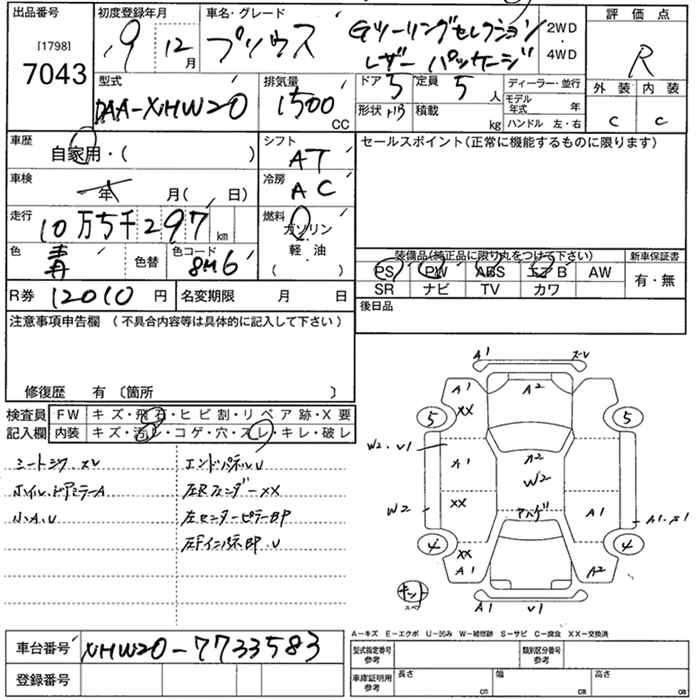 出品番号
[1798]
7043
初度登録年月
19 12月
車名・グレード
プリウス Gツーリングセレクション
レザー パッケージ
2WD
4WD
評価点
R
外装 内装
C C
型式
DAA-NHW20
排気量
1500 CC
ドア 5
形状 HB
定員 5 人
積載 kg
ディーラー・並行
モデル年式 年
ハンドル 左・右
車歴
自家用・( )
シフト
AT
セールスポイント(正常に機能するものに限ります)
車検
年 月( 日)
冷房
AC
走行
10万5千297km
燃料
ガソリン
軽・油
( )
色
青
色替
色コード
8M6
装備品(純正品に限り丸をつけて下さい)
PS PW ABS エアB AW
SR ナビ TV カワ
新車保証書
有・無
R券 12010円
名変期限 月 日
後日品
注意事項申告欄 (不具合内容等は具体的に記入して下さい)
修復歴 有 〔箇所 〕
検査員
記入欄
FW キズ・飛石・ヒビ割・リペア跡・X要
内装 キズ・汚レ・コゲ・穴・スレ・キレ・破レ
シートシワ スレ
ホイル、ドアミラーA
小A.U
エンドパネルU
左Rフェンダー XX
左センターピラーBP
左Fインパネ BP.U
A1 スレ
A1 A2
XX
5 5
W2.U1
A1 A2
W2
W2 XX アハゲ A1
A1.S1
4 4
XX
A1 A2
キット
スペ
A1 U1
A-キズ E-エクボ U-凹み W-補修跡 S-サビ C-腐食 XX-交換済
車台番号 NHW20-7733583
登録番号
型式指定番号
参考
類別区分番号
参考
車庫証明用
参考
長さ cm
幅 cm
高さ cm